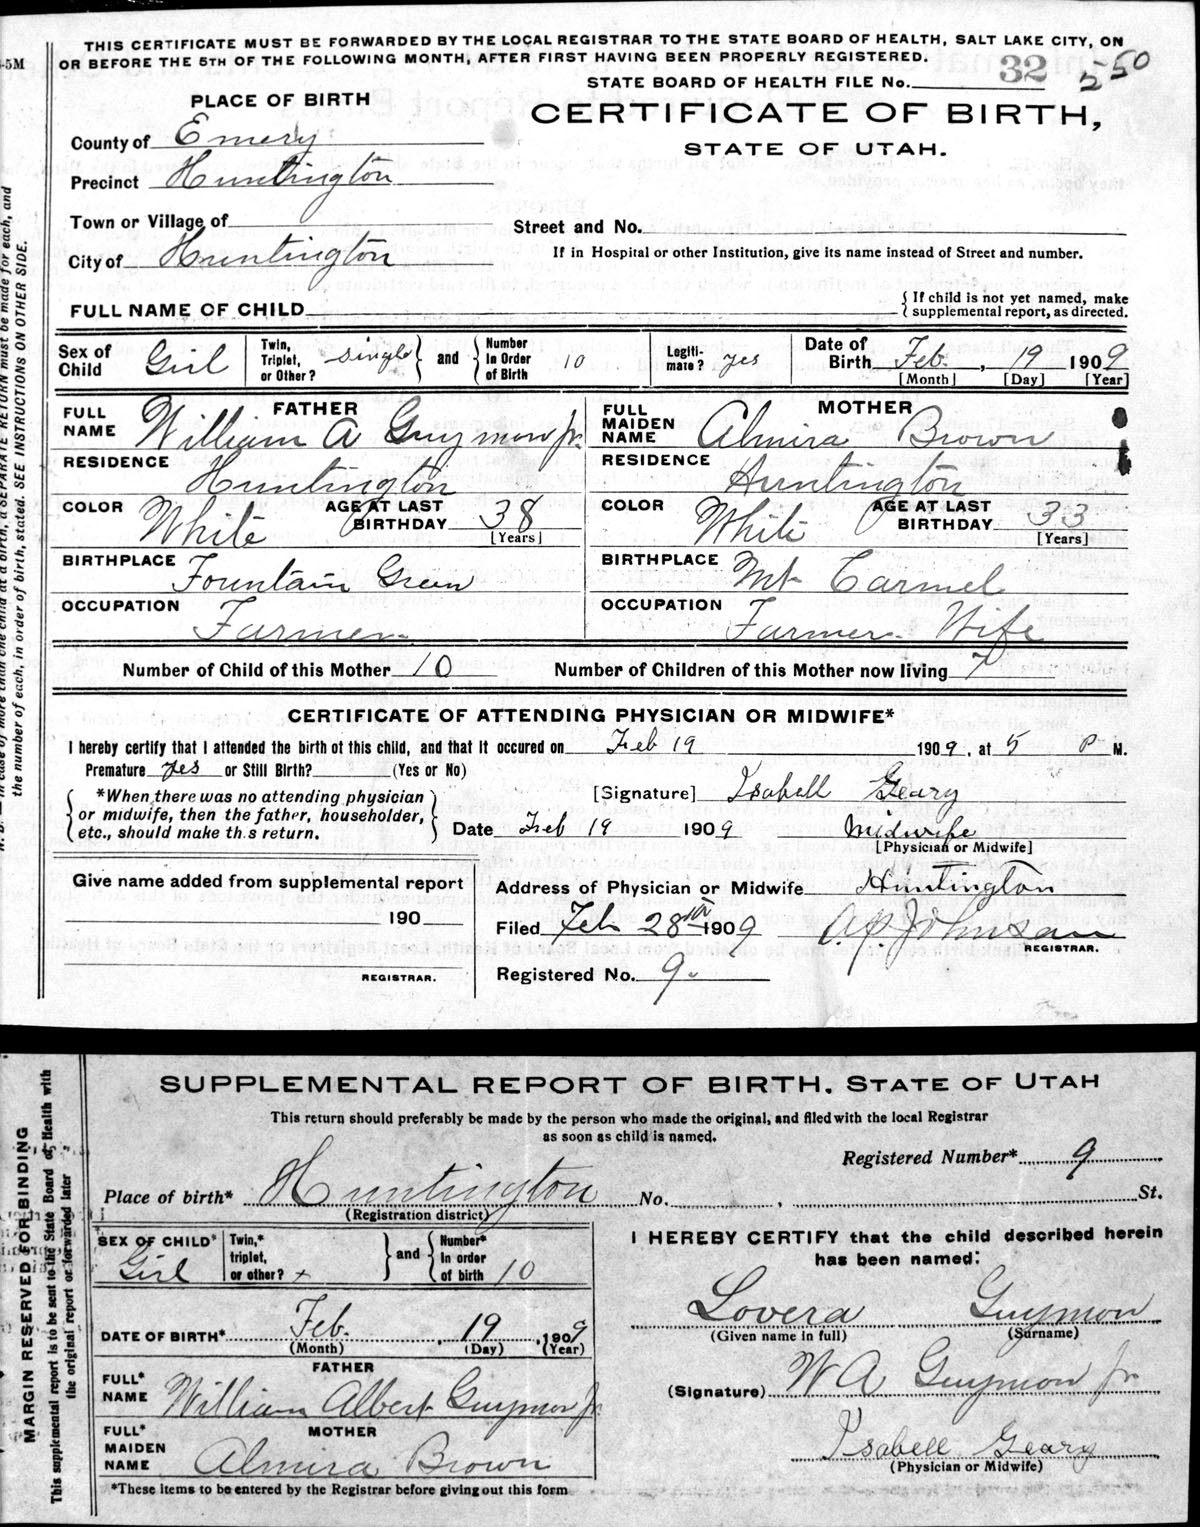 THIS CERTIFICATE MUST BE FORWARDED BY THE LOCAL REGISTRAR TO THE STATE BOARD OF HEALTH, SALT LAKE CITY, ON
OR BEFORE THE 5TH OF THE FOLLOWING MONTH, AFTER FIRST HAVING BEEN PROPERLY REGISTERED.
STATE BOARD OF HEALTH FILE No. 32 550
PLACE OF BIRTH
CERTIFICATE OF BIRTH,
STATE OF UTAH.
County of Emery
Precinct Huntington
Town or Village of
Street and No.
City of Huntington
If in Hospital or other Institution, give its name instead of Street and number.
FULL NAME OF CHILD
If child is not yet named, make
supplemental report, as directed.
Sex of Child Girl
Twin, Triplet, or Other? single and Number in Order of Birth 10
Legiti- mate? yes
Date of Birth Feb. , 19 1909
[Month] [Day] [Year]
FATHER
FULL NAME William A Guymon Jr.
MOTHER
FULL MAIDEN NAME Almira Brown
RESIDENCE Huntington
RESIDENCE Huntington
COLOR White AGE AT LAST BIRTHDAY 38 [Years]
COLOR White AGE AT LAST BIRTHDAY 33 [Years]
BIRTHPLACE Fountain Green
BIRTHPLACE Mt Carmel
OCCUPATION Farmer
OCCUPATION Farmer Wife
Number of Child of this Mother 10 Number of Children of this Mother now living 7
CERTIFICATE OF ATTENDING PHYSICIAN OR MIDWIFE*
I hereby certify that I attended the birth of this child, and that it occured on Feb 19 1909, at 5 P M.
Premature yes or Still Birth? (Yes or No)
*When there was no attending physician
or midwife, then the father, householder,
etc., should make this return.
[Signature] Isabell Geary
Date Feb 19 1909 Midwife
[Physician or Midwife]
Give name added from supplemental report
190
REGISTRAR.
Address of Physician or Midwife Huntington
Filed Feb 28th 1909 A.P. Johnson
REGISTRAR.
Registered No. 9.
the number of each, in order of birth, stated. SEE INSTRUCTIONS ON OTHER SIDE.
SUPPLEMENTAL REPORT OF BIRTH. STATE OF UTAH
This return should preferably be made by the person who made the original, and filed with the local Registrar
as soon as child is named.
Registered Number* 9
Place of birth* Huntington No. , St.
(Registration district)
SEX OF CHILD* Girl
Twin,* triplet, or other? x and Number* in order of birth 10
DATE OF BIRTH* Feb. , 19 , 1909
(Month) (Day) (Year)
FATHER
FULL* NAME William Albert Guymon Jr
MOTHER
FULL* MAIDEN NAME Almira Brown
*These items to be entered by the Registrar before giving out this form
I HEREBY CERTIFY that the child described herein
has been named:
Lovera Guymon
(Given name in full) (Surname)
(Signature) W A Guymon Jr
Isabell Geary
(Physician or Midwife)
MARGIN RESERVED FOR BINDING
This supplemental report is to be sent to the State Board of Health with
the original report or forwarded later